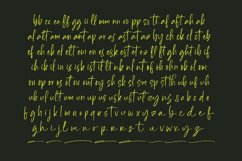 bb cc ee ff gg ii ll mm nn oo pp ss tt af aft ah ak
al alt am an ant ap ar as ast at az by ch ck cl ct eb
ef eh ek el elt en es esk est et ez fl ft gh ght ib if
ih ik il in is isk ist it lt nk nl nt of oh ohn ok ol on
oo op or os ot ov out oy sh sk sl sm sp st th ub uf uh
uk ul ult um un up us usk ust
a b c d e
f g h i j k l m n o p q r s t u v w x y z a b c d e f
g h i j k l m n o p q r s t u v w x y z